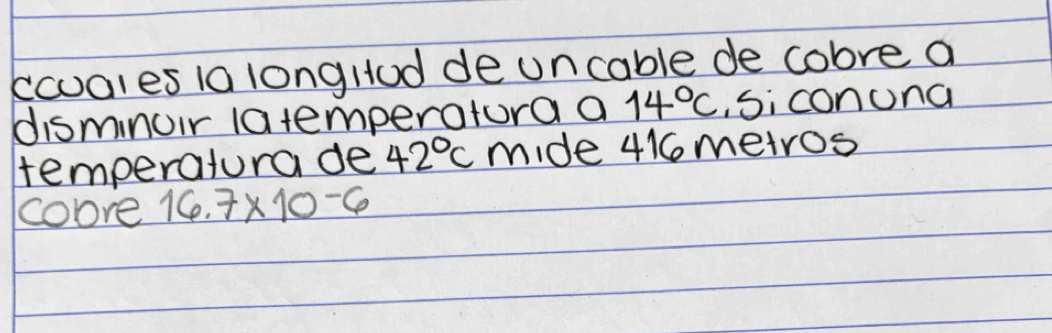 ccuales la longitud de un cable de cobre a
disminuir la temperatura a 14°C, si con una
temperatura de 42°C mide 416 metros
cobre 16.7x10-6